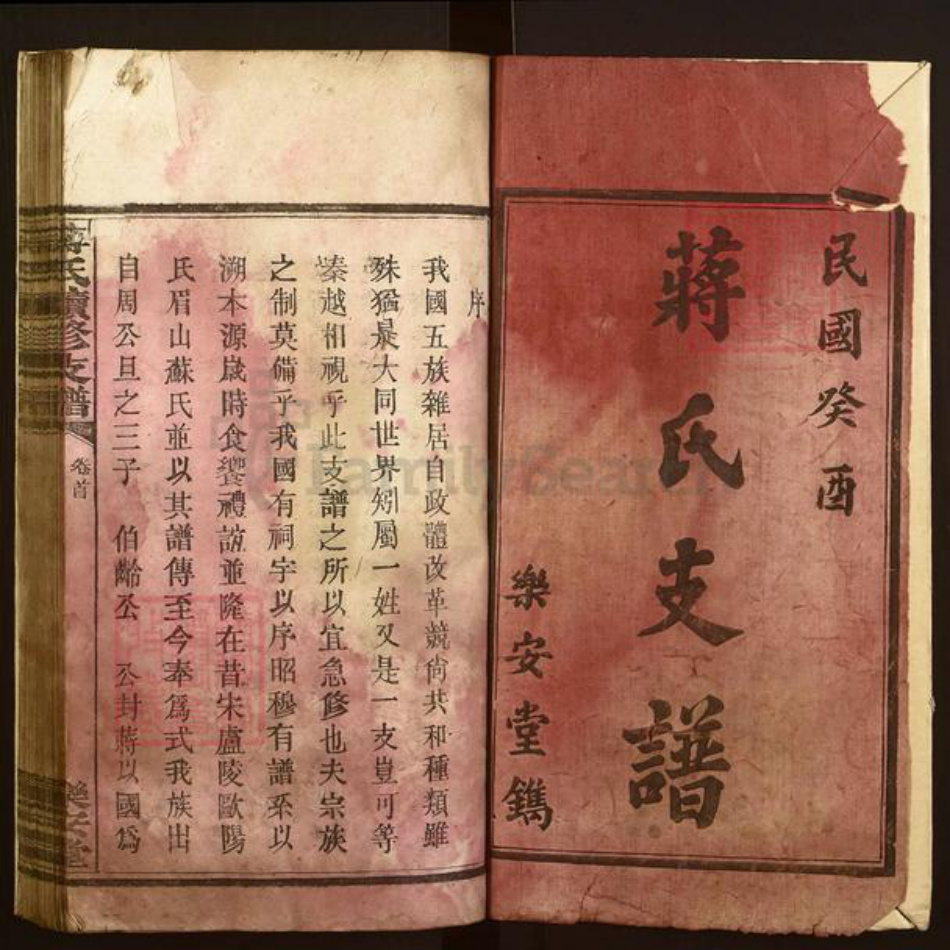 民國癸酉
蔣氏支譜
樂安堂鐫
序
我國五族雜居自政體改革競尙共和種類雖
殊猶是大同世界矧屬一姓又是一支豈可等
秦越相視乎此支譜之所以宜急修也夫宗族
之制莫備乎我國有祠宇以序昭穆有譜系以
溯本源歲時食饗禮誼並隆在昔宋廬陵歐陽
氏眉山蘇氏並以其譜傳至今奉爲式我族出
自周公旦之三子 伯齡公 公封蔣以國爲
蔣氏續修支譜
卷首
樂安堂
FamilySearch